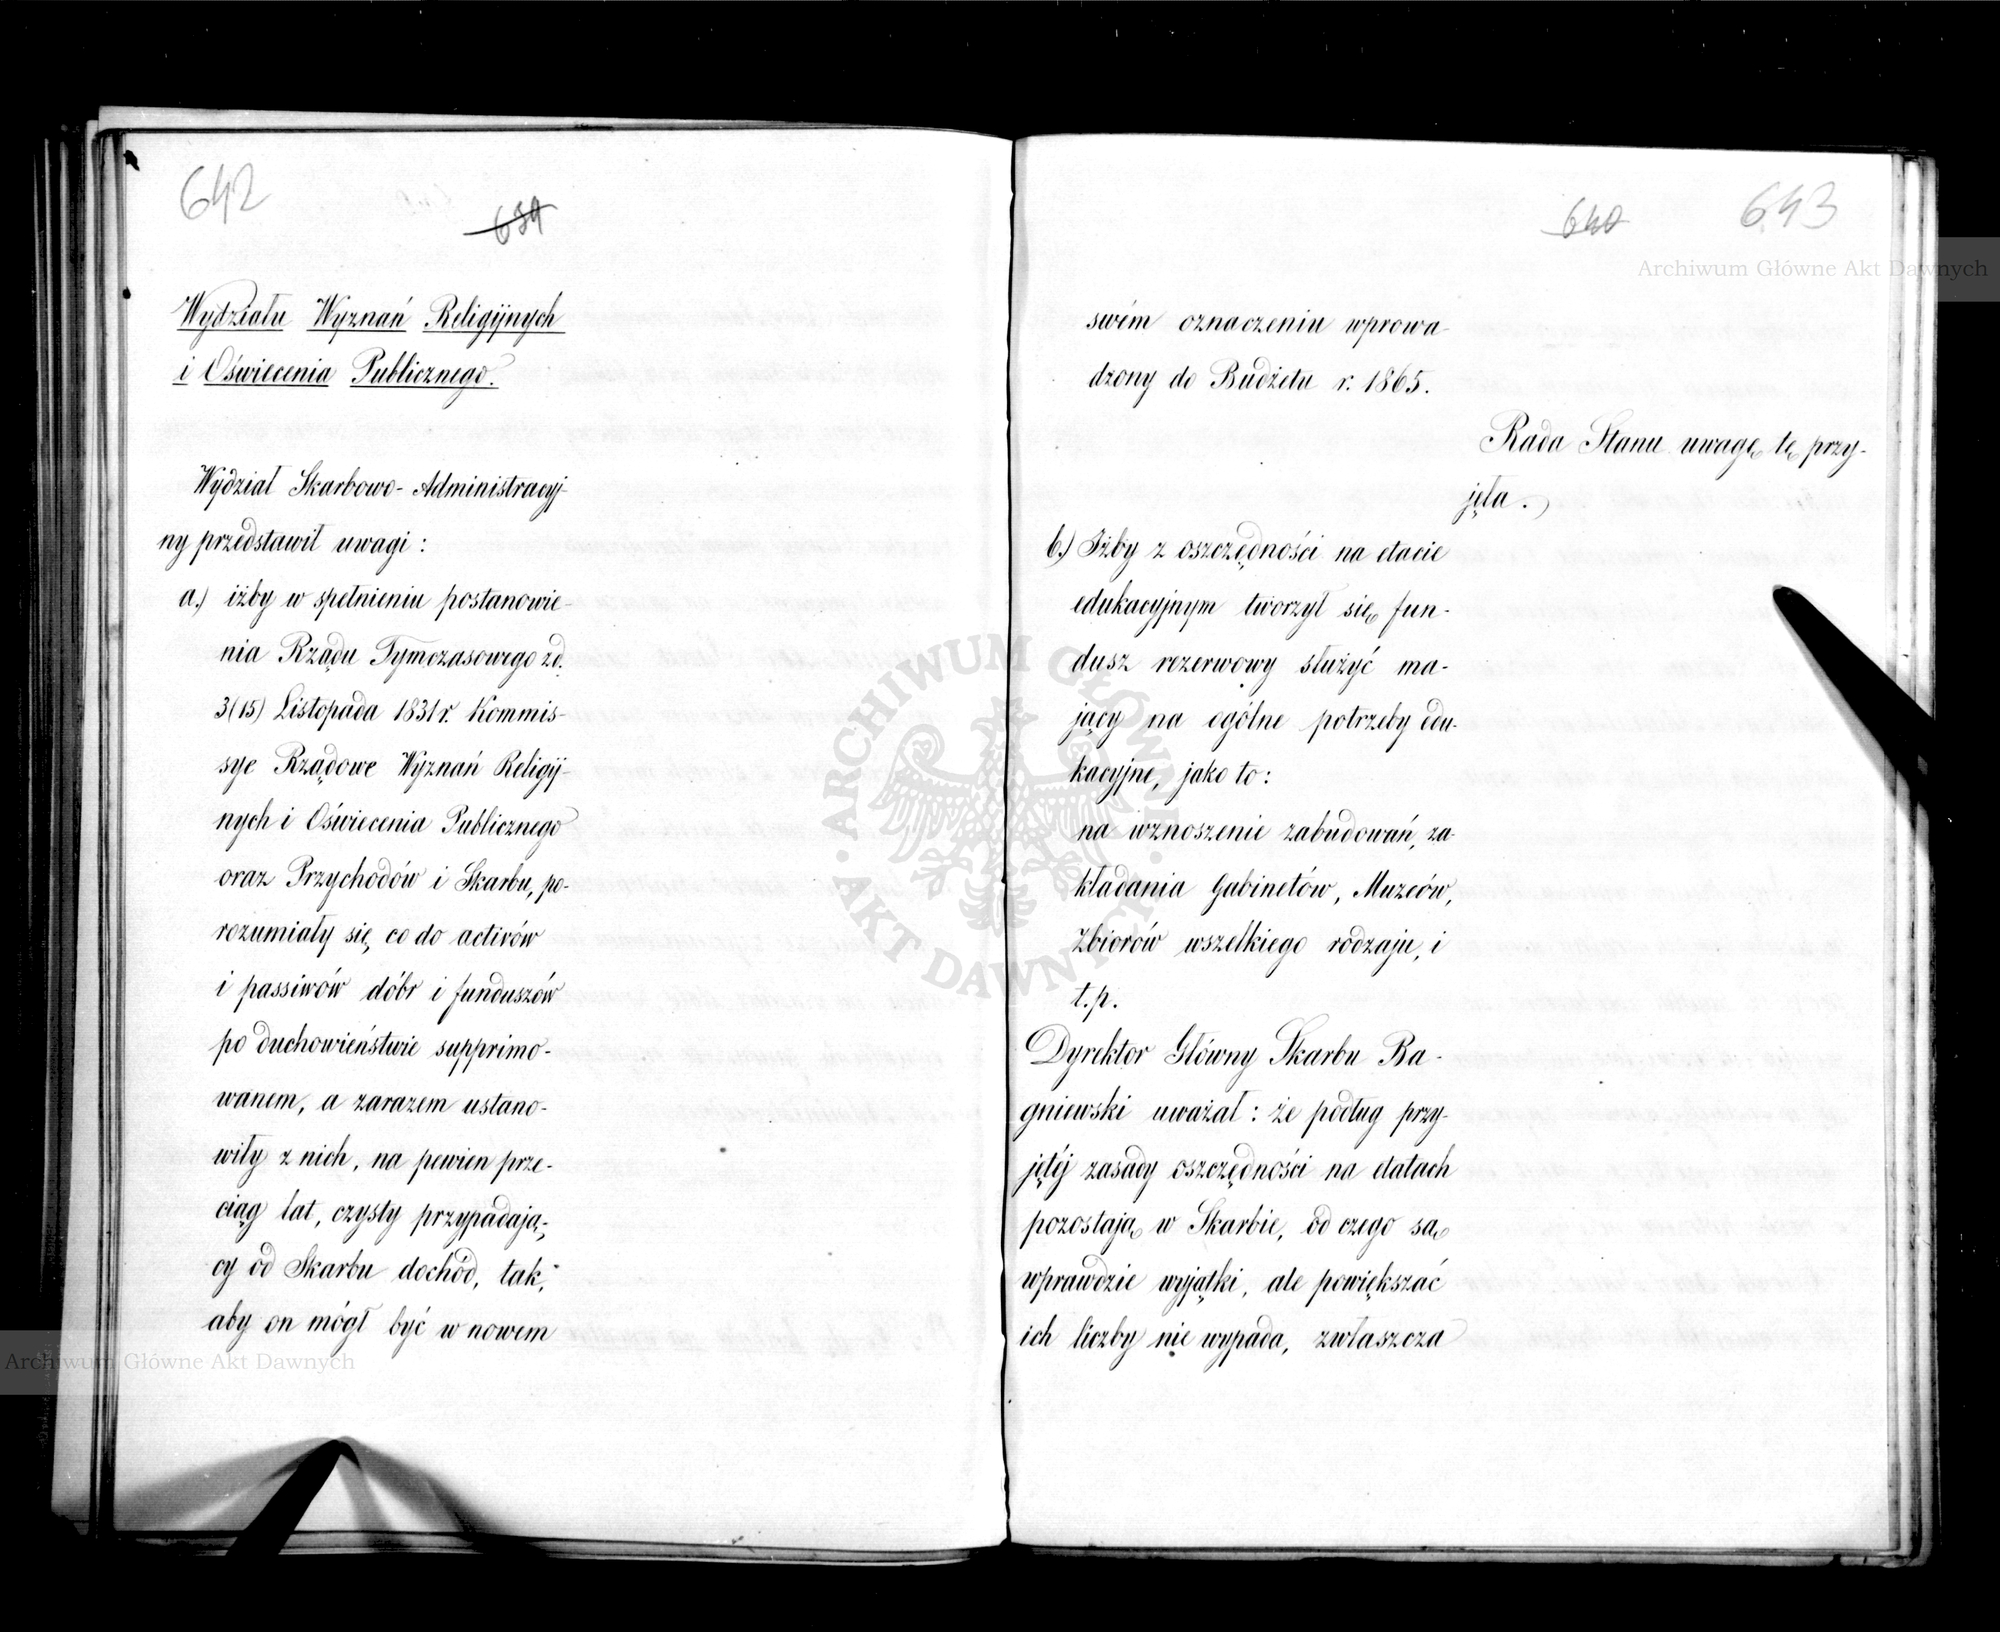 642
639
Wydziału Wyznań Religijnych
i Oświecenia Publicznego.
Wydział Skarbowo-Administracyj-
ny przedstawił uwagi:
a.) iżby w spełnieniu postanowie-
nia Rządu Tymczasowego zd.
3(15) Listopada 1831 r. Kommis-
sye Rządowe Wyznań Religij-
nych i Oświecenia Publicznego
oraz Przychodów i Skarbu, po-
rozumiały się, co do activów
i passivów dóbr i funduszów
po duchowieństwie supprimo-
wanem, a zarazem ustano-
wiły z nich, na pewien prze-
ciąg lat, czysty przypadają-
cy od Skarbu dochód, tak,
aby on mógł być w nowem
640
643
swém oznaczeniu wprowa-
dzony do Budżetu r. 1865.
Rada Stanu uwagę tę przy-
jęła.
b.) Iżby z oszczędności na etacie
edukacyjnym tworzył się fun-
dusz rezerwowy służyć ma-
jący na ogólne potrzeby edu-
kacyjne, jako to:
na wznoszenie zabudowań, za-
kładania Gabinetów, Muzeów,
Zbiorów wszelkiego rodzaju, i
t.p.
Dyrektor Główny Skarbu Ba-
gniewski uważał: że podług przy-
jętéj zasady oszczędności na etatach
pozostają w Skarbie, od czego są
wprawdzie wyjątki, ale powiększać
ich liczby nie wypada, zwłaszcza
Archiwum Główne Akt Dawnych
ARCHIWUM GŁÓWNE
AKT DAWNYCH
Archiwum Główne Akt Dawnych